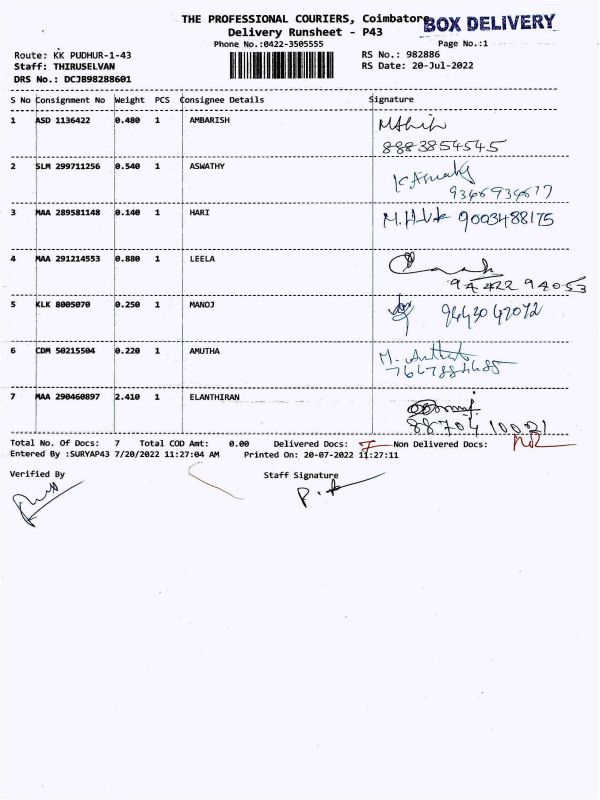 THE PROFESSIONAL COURIERS, Coimbatore
BOX DELIVERY
Delivery Runsheet - P43
Phone No.:0422-3505555 Page No.:1
Route: KK PUDHUR-1-43 RS No.: 982886
Staff: THIRUSELVAN RS Date: 20-Jul-2022
DRS No.: DCJB98288601
S No Consignment No Weight PCS Consignee Details Signature
1 ASD 1136422 0.480 1 AMBARISH
8883854545
2 SLM 299711256 0.540 1 ASWATHY
3 MAA 289581148 0.140 1 HARI 9003488175
4 MAA 291214553 0.880 1 LEELA
94422 94053
5 KLK 8005070 0.250 1 MANOJ 9443047072
6 CDM 50215504 0.220 1 AMUTHA
7 MAA 290460897 2.410 1 ELANTHIRAN
88704 10021
Total No. Of Docs: 7 Total COD Amt: 0.00 Delivered Docs: 7 Non Delivered Docs:
Entered By :SURYAP43 7/20/2022 11:27:04 AM Printed On: 20-07-2022 11:27:11
Verified By Staff Signature